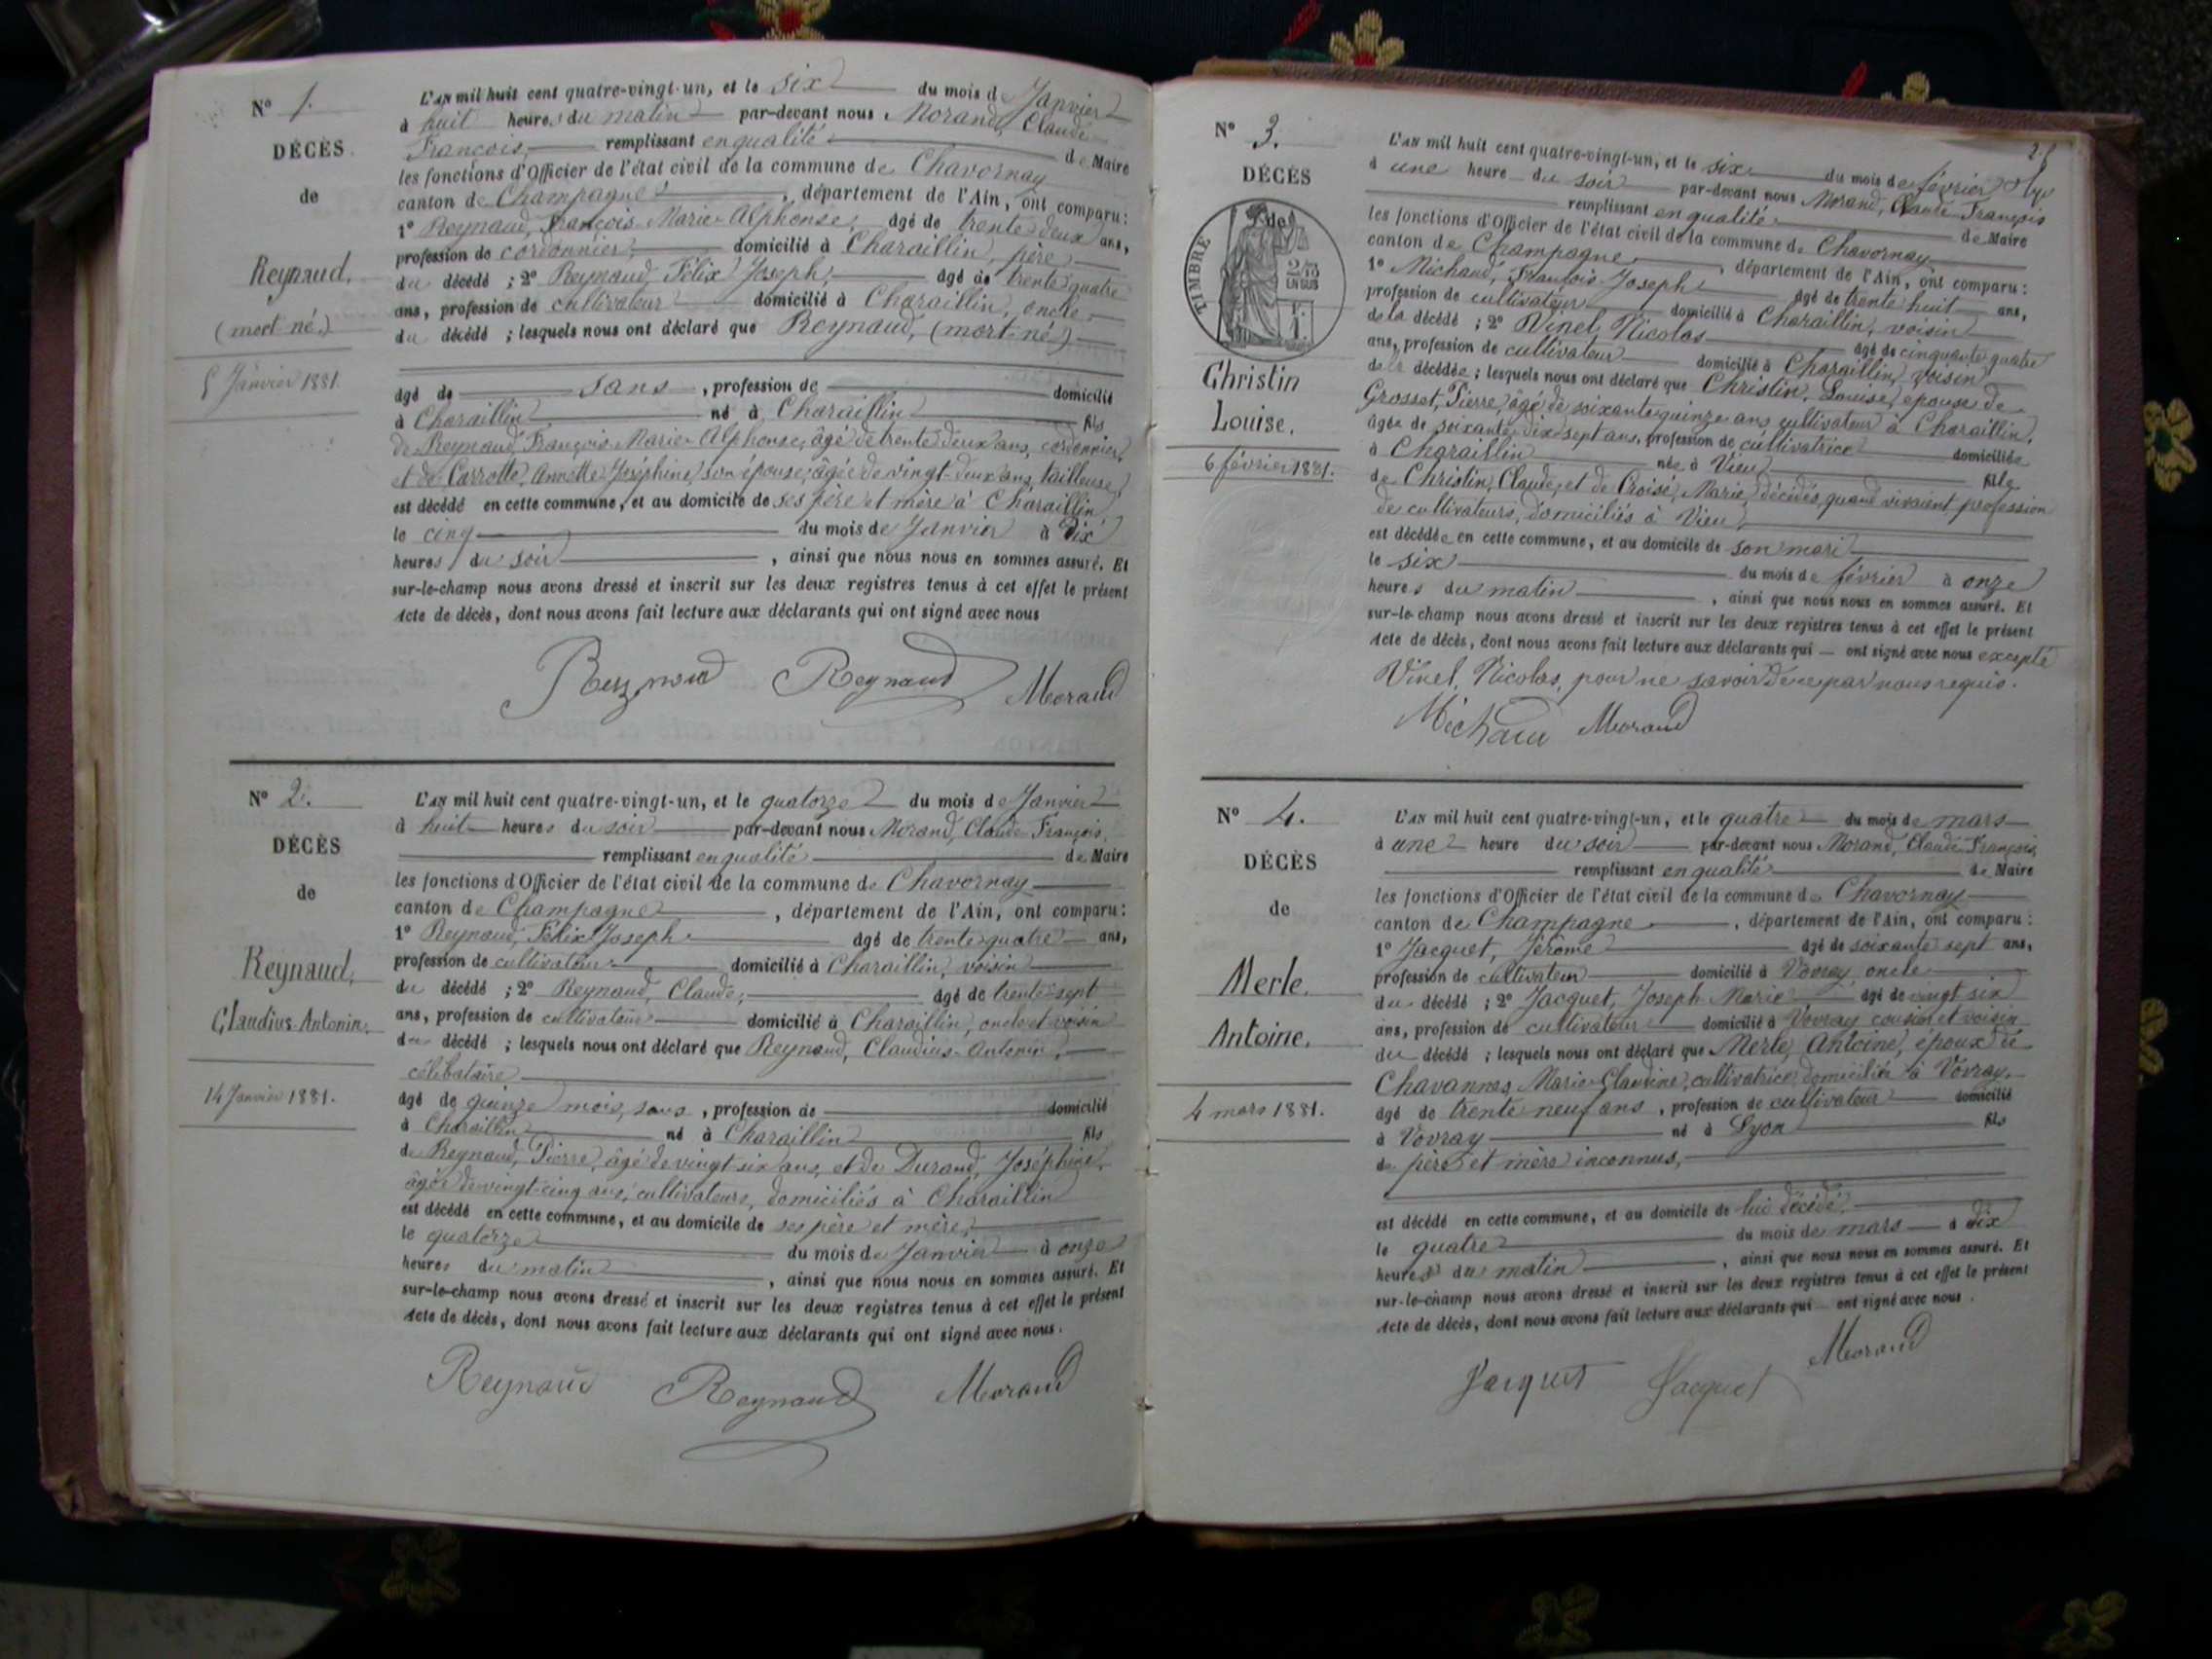 N° 1.
DÉCÈS
de
Reynaud,
(mort né.)
5 Janvier 1881.
L'AN mil huit cent quatre-vingt-un, et le six du mois de Janvier
à huit heures du matin par-devant nous Morand, Claude
François, remplissant en qualité de Maire
les fonctions d'Officier de l'état civil de la commune de Chavornay
canton de Champagne, département de l'Ain, ont comparu:
1° Reynaud, François-Marie-Alphonse, âgé de trente deux ans,
profession de cordonnier, domicilié à Charaillin, père
du décédé ; 2° Reynaud, Félix Joseph, âgé de trente quatre
ans, profession de cultivateur domicilié à Charaillin, oncle
du décédé ; lesquels nous ont déclaré que Reynaud, (mort-né)
âgé de sans, profession de domicilié
à Charaillin né à Charaillin fils
de Reynaud, François-Marie-Alphonse, âgé de trente deux ans, cordonnier,
et de Carrotte, Annette Joséphine, son épouse, âgée de vingt-deux ans, tailleuse,
est décédé en cette commune, et au domicile de ses père et mère à Charaillin
le cinq du mois de Janvier à Dix
heures du soir, ainsi que nous nous en sommes assuré. Et
sur-le-champ nous avons dressé et inscrit sur les deux registres tenus à cet effet le présent
Acte de décès, dont nous avons fait lecture aux déclarants qui ont signé avec nous
Reynaud Reynaud Morand
N° 2.
DÉCÈS
de
Reynaud,
Claudius-Antonin,
14 Janvier 1881.
L'AN mil huit cent quatre-vingt-un, et le quatorze du mois de Janvier
à huit heures du soir par-devant nous Morand, Claude François,
remplissant en qualité de Maire
les fonctions d'Officier de l'état civil de la commune de Chavornay
canton de Champagne, département de l'Ain, ont comparu:
1° Reynaud, Félix Joseph âgé de trente quatre ans,
profession de cultivateur domicilié à Charaillin, voisin
du décédé ; 2° Reynaud, Claude, âgé de trente-sept
ans, profession de cultivateur domicilié à Charaillin, oncle et voisin
du décédé ; lesquels nous ont déclaré que Reynaud, Claudius-Antonin,
célibataire
âgé de quinze mois, sans, profession de domicilié
à Charaillin né à Charaillin fils
de Reynaud, Pierre, âgé de vingt six ans, et de Durand, Joséphine,
âgée de vingt-cinq ans, cultivateurs, domiciliés à Charaillin
est décédé en cette commune, et au domicile de ses père et mère,
le quatorze du mois de Janvier à onze
heures du matin, ainsi que nous nous en sommes assuré. Et
sur-le-champ nous avons dressé et inscrit sur les deux registres tenus à cet effet le présent
Acte de décès, dont nous avons fait lecture aux déclarants qui ont signé avec nous.
Reynaud Reynaud Morand
N° 3.
DÉCÈS
de
TIMBRE
Christin
Louise,
6 février 1881.
L'AN mil huit cent quatre-vingt-un, et le six du mois de février
à une heure du soir par-devant nous Morand, Claude François
remplissant en qualité de Maire
les fonctions d'Officier de l'état civil de la commune de Chavornay
canton de Champagne, département de l'Ain, ont comparu :
1° Michaud, François-Joseph âgé de trente huit ans,
profession de cultivateur domicilié à Charaillin, voisin
de la décédé ; 2° Vinel, Nicolas âgé de cinquante quatre
ans, profession de cultivateur domicilié à Charaillin, voisin
de la décédée ; lesquels nous ont déclaré que Christin, Louise, épouse de
Grosset, Pierre, âgé de soixante quinze ans cultivateur à Charaillin,
âgée de soixante-dix sept ans, profession de cultivatrice domiciliée
à Charaillin née à Vieu fille
de Christin, Claude, et de Croisé, Marie, décédés, quand vivaient profession
de cultivateurs, domiciliés à Vieu
est décédée en cette commune, et au domicile de son mari
le six du mois de février à onze
heures du matin, ainsi que nous nous en sommes assuré. Et
sur-le-champ nous avons dressé et inscrit sur les deux registres tenus à cet effet le présent
Acte de décès, dont nous avons fait lecture aux déclarants qui ont signé avec nous excepté
Vinel, Nicolas, pour ne savoir de ce par nous requis.
Michaud Morand
N° 4.
DÉCÈS
de
Merle,
Antoine,
4 mars 1881.
L'AN mil huit cent quatre-vingt-un, et le quatre du mois de mars
à une heure du soir par-devant nous Morand, Claude François,
remplissant en qualité de Maire
les fonctions d'Officier de l'état civil de la commune de Chavornay
canton de Champagne, département de l'Ain, ont comparu :
1° Jacquet, Jérôme âgé de soixante sept ans,
profession de cultivateur domicilié à Vovray, oncle
du décédé ; 2° Jacquet, Joseph Marie âgé de vingt six
ans, profession de cultivateur domicilié à Vovray cousin et voisin
du décédé ; lesquels nous ont déclaré que Merle, Antoine, époux de
Chavannes, Marie-Claudine, cultivatrice, domiciliée à Vovray,
âgé de trente neuf ans, profession de cultivateur domicilié
à Vovray né à Lyon fils
de père et mère inconnus,
est décédé en cette commune, et au domicile de lui décédé,
le quatre du mois de mars à dix
heures du matin, ainsi que nous nous en sommes assuré. Et
sur-le-champ nous avons dressé et inscrit sur les deux registres tenus à cet effet le présent
Acte de décès, dont nous avons fait lecture aux déclarants qui ont signé avec nous.
Jacquet Jacquet Morand